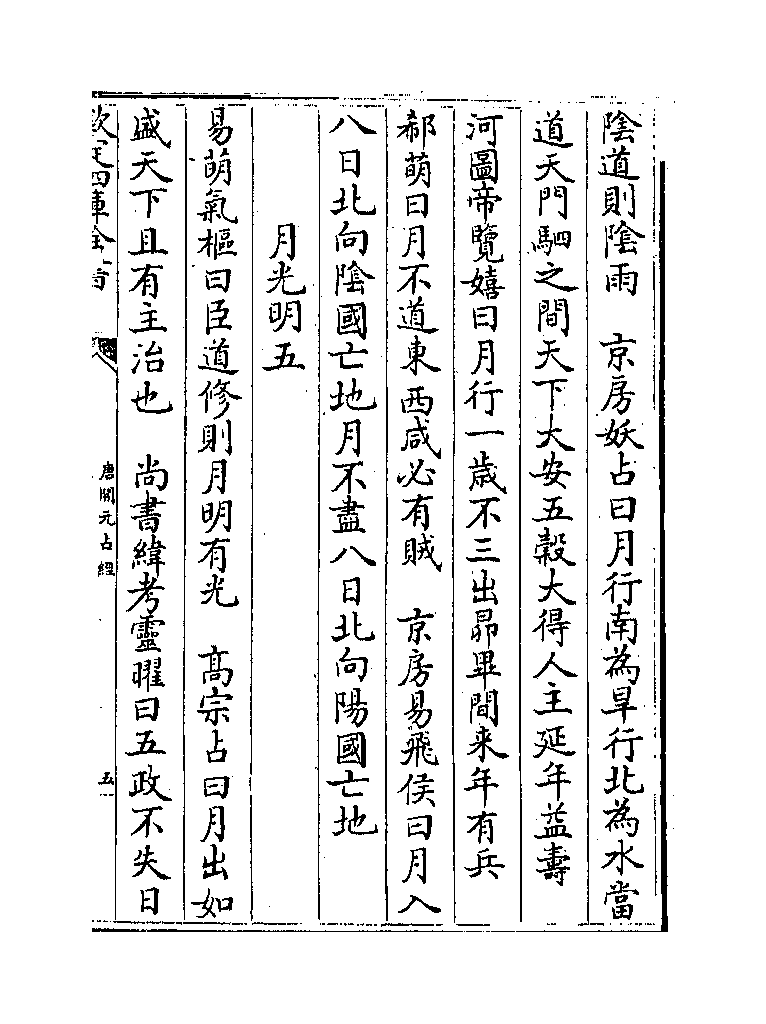 陰道則隂雨　京房妖占曰月行南為旱行北為水當
道天門駟之間天下大安五穀大得人主延年益壽
河圖帝覽嬉曰月行一歲不三出昴畢間来年有兵
郗萌曰月不道東西咸必有賊　京房易飛侯曰月入
八日北向隂國亡地月不盡八日北向陽國亡地
月光明五
易萌氣樞曰臣道修則月明有光　高宗占曰月出如
盛天下且有主治也　尚書緯考靈曜曰五政不失日
欽定四庫全書
唐開元占經
五